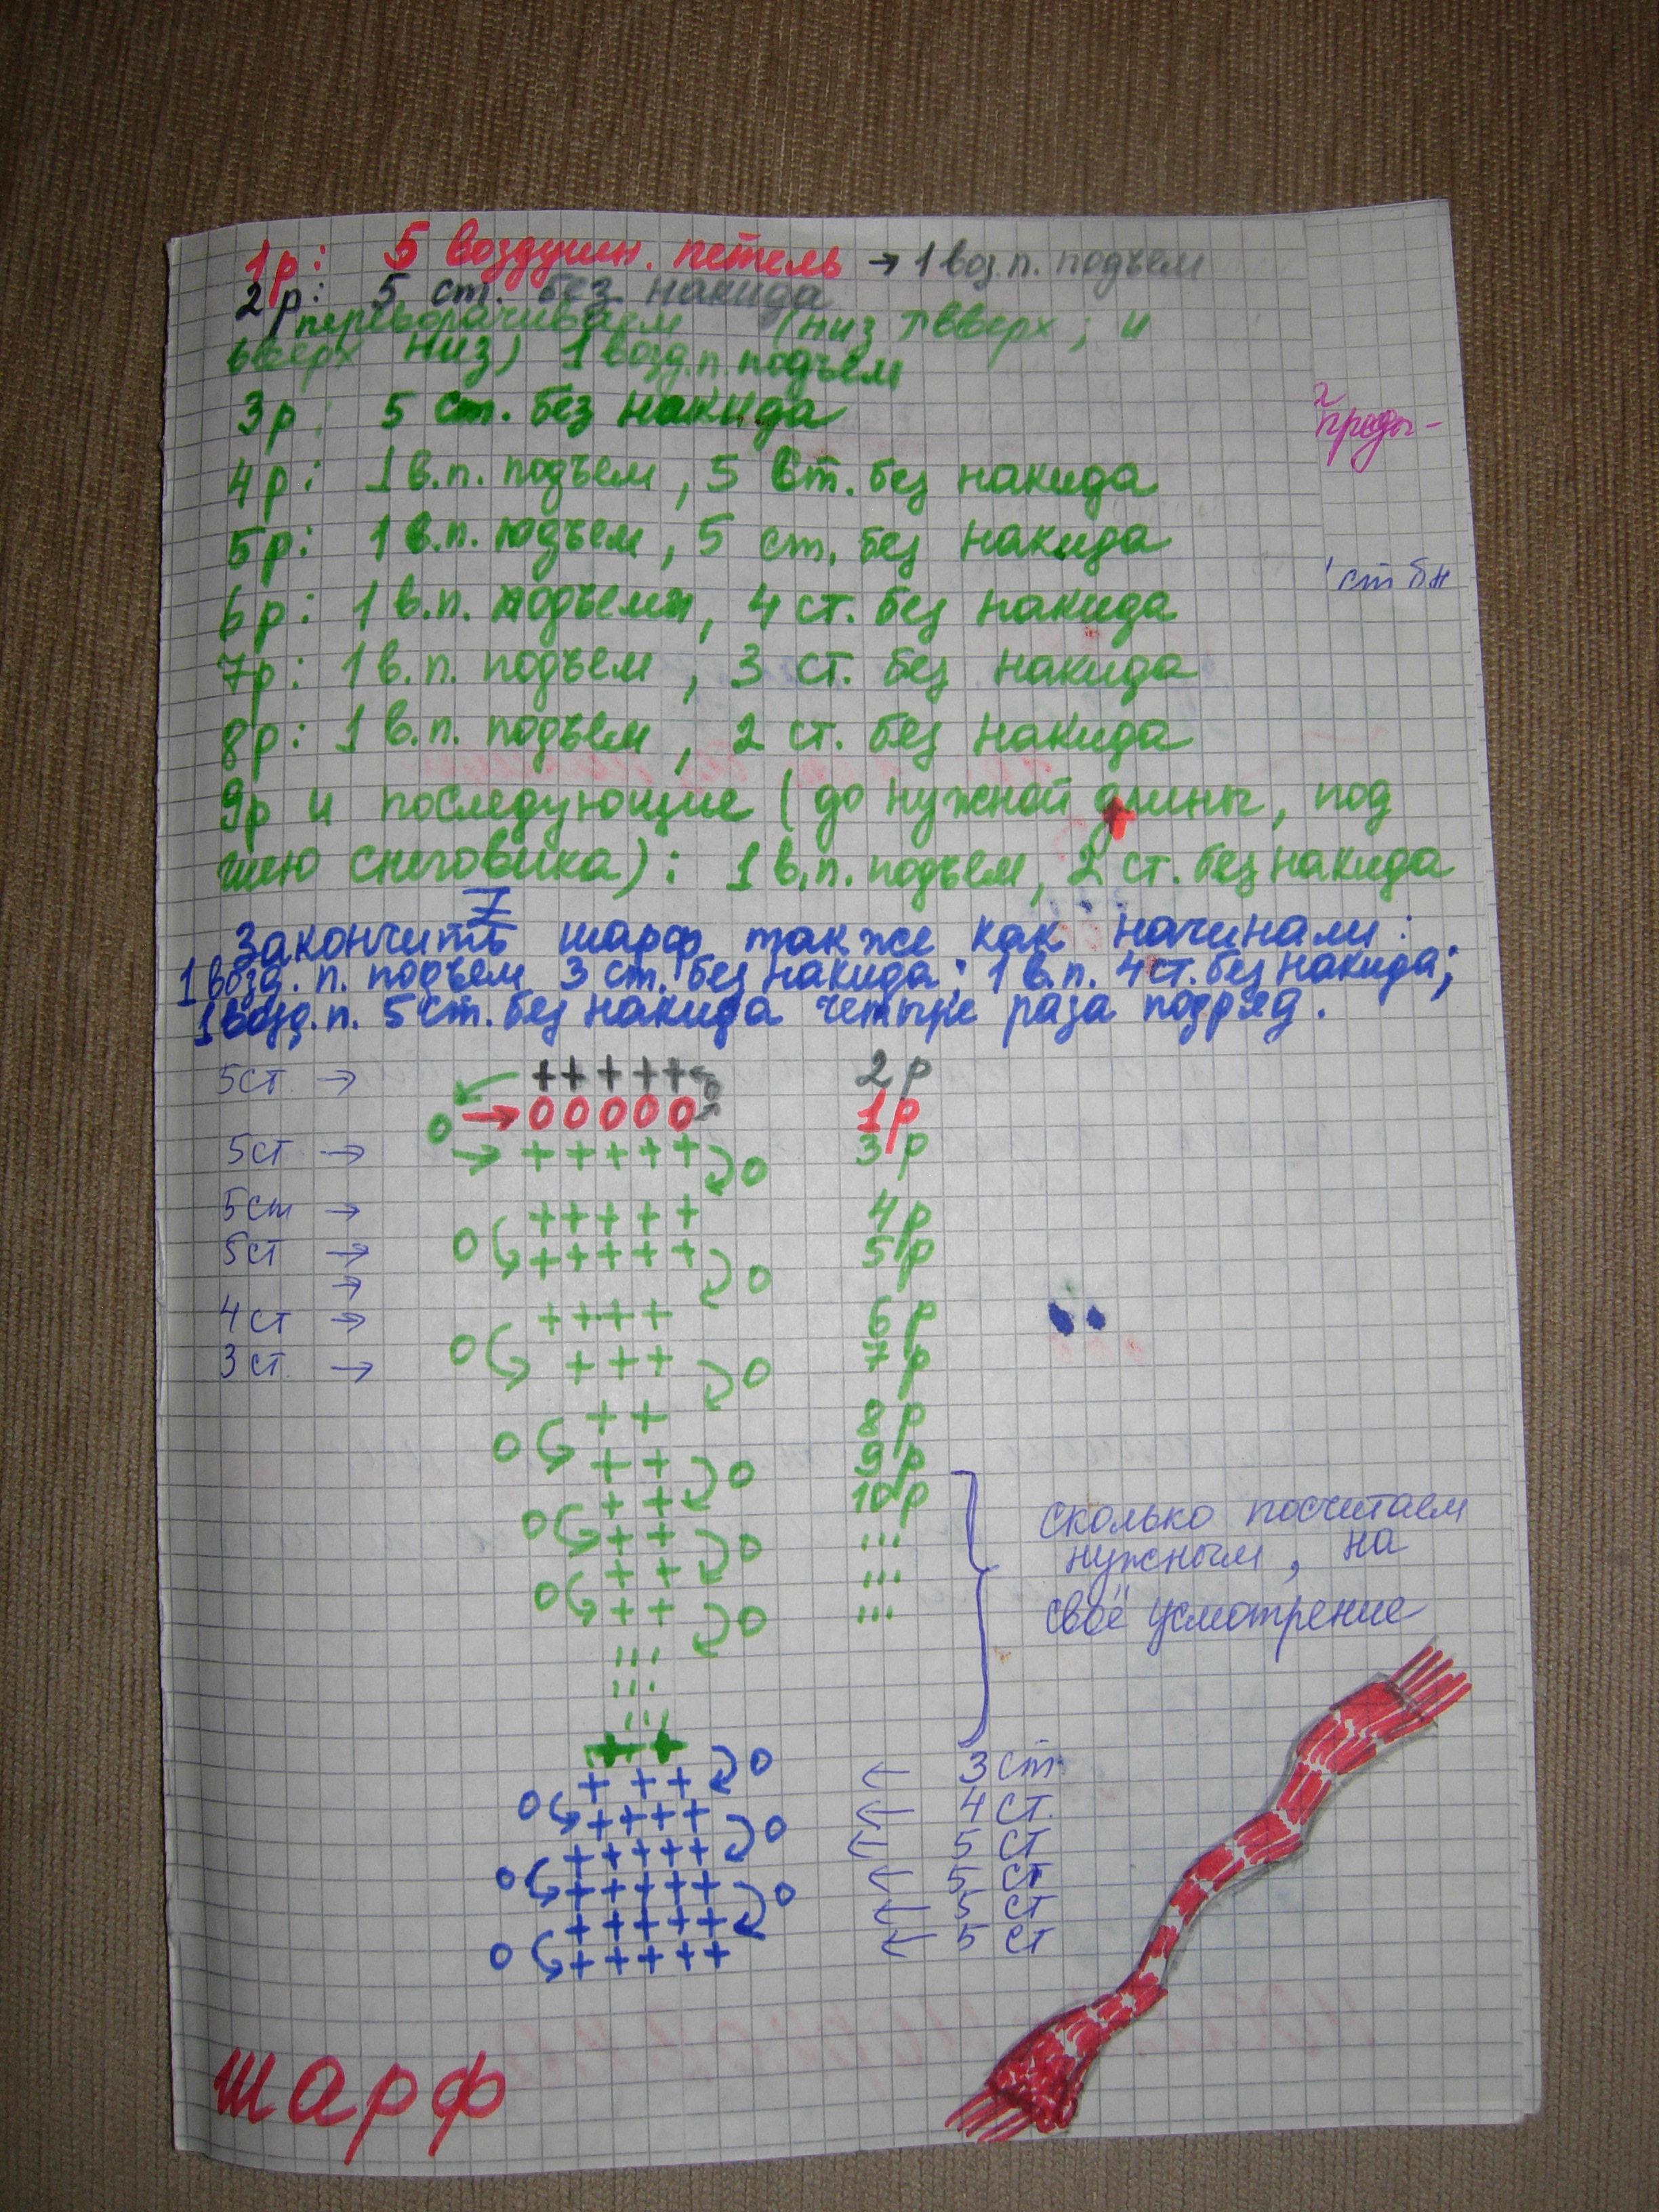 1р: 5 воздушн. петель → 1 воз.п. подъем
2р: 5 ст. без накида
переворачиваем (низ ↑ вверх; и
вверх низ) 1 возд.п. подъем
3р: 5 ст. без накида
4р: 1 в.п. подъем, 5 ст. без накида
5р: 1 в.п. подъем, 5 ст. без накида
6р: 1 в.п. подъем, 4 ст. без накида
7р: 1 в.п. подъем, 3 ст. без накида
8р: 1 в.п. подъем, 2 ст. без накида
9р и последующие (до нужной длины, под
шею снеговика): 1 в.п. подъем, 2 ст. без накида
Закончить шарф также как начинали:
1 возд. п. подъем 3 ст. без накида; 1 в.п. 4 ст. без накида;
1 возд.п. 5 ст. без накида четыре раза подряд.
преды-
ст бн
5ст. → +++++ 2р
0 → 00000 1р
5ст → → +++++ 0 3р
5ст → +++++ 4р
5ст → 0 +++++ 0 5р
→
4ст → ++++ 6р
3ст. → 0 +++ 0 7р
++ 8р
0 ++ 0 9р
++ 10р
0 ++ 0 ...
++ ...
0 ++ 0 ...
...
...
...
++ 0
+++ ← 3ст.
0 ++++ 0 ← 4ст.
+++++ ← 5ст
0 +++++ 0 ← 5ст
+++++ ← 5ст
0 +++++ ← 5ст
сколько посчитаем
нужным, на
своё усмотрение
шарф